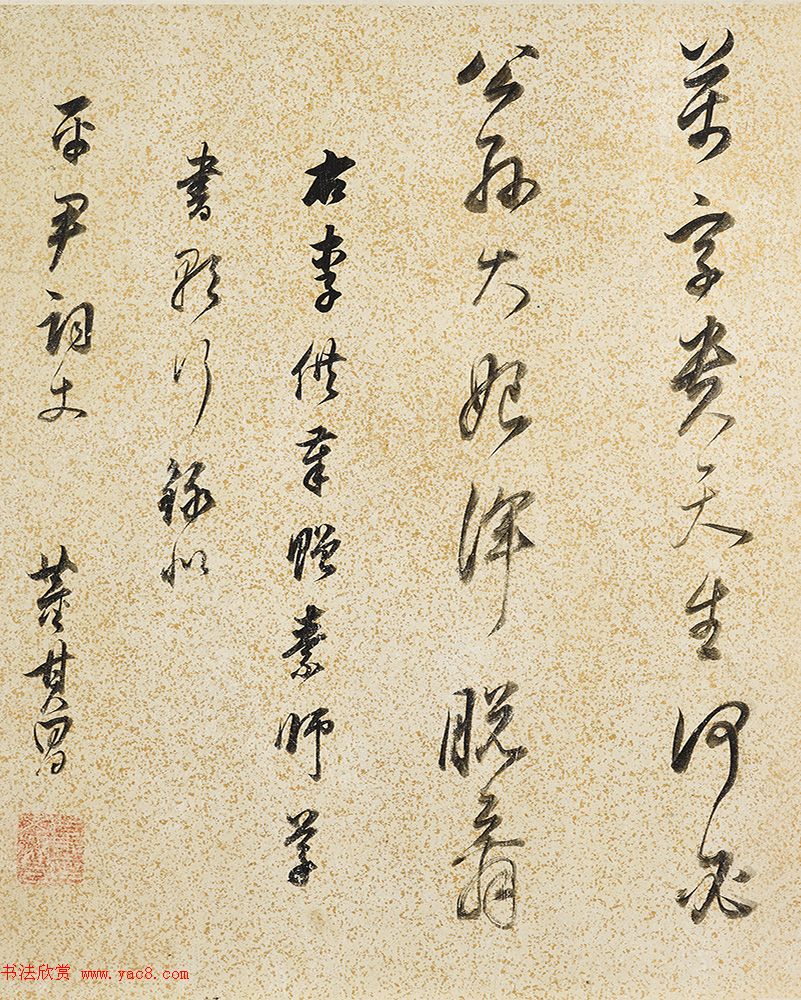 萬字貴天生何必
公孫大娘渾脫舞
右李供奉贈素師草
書歌行錄似
平尹詞丈
董其昌
书法欣赏 www.yac8.com